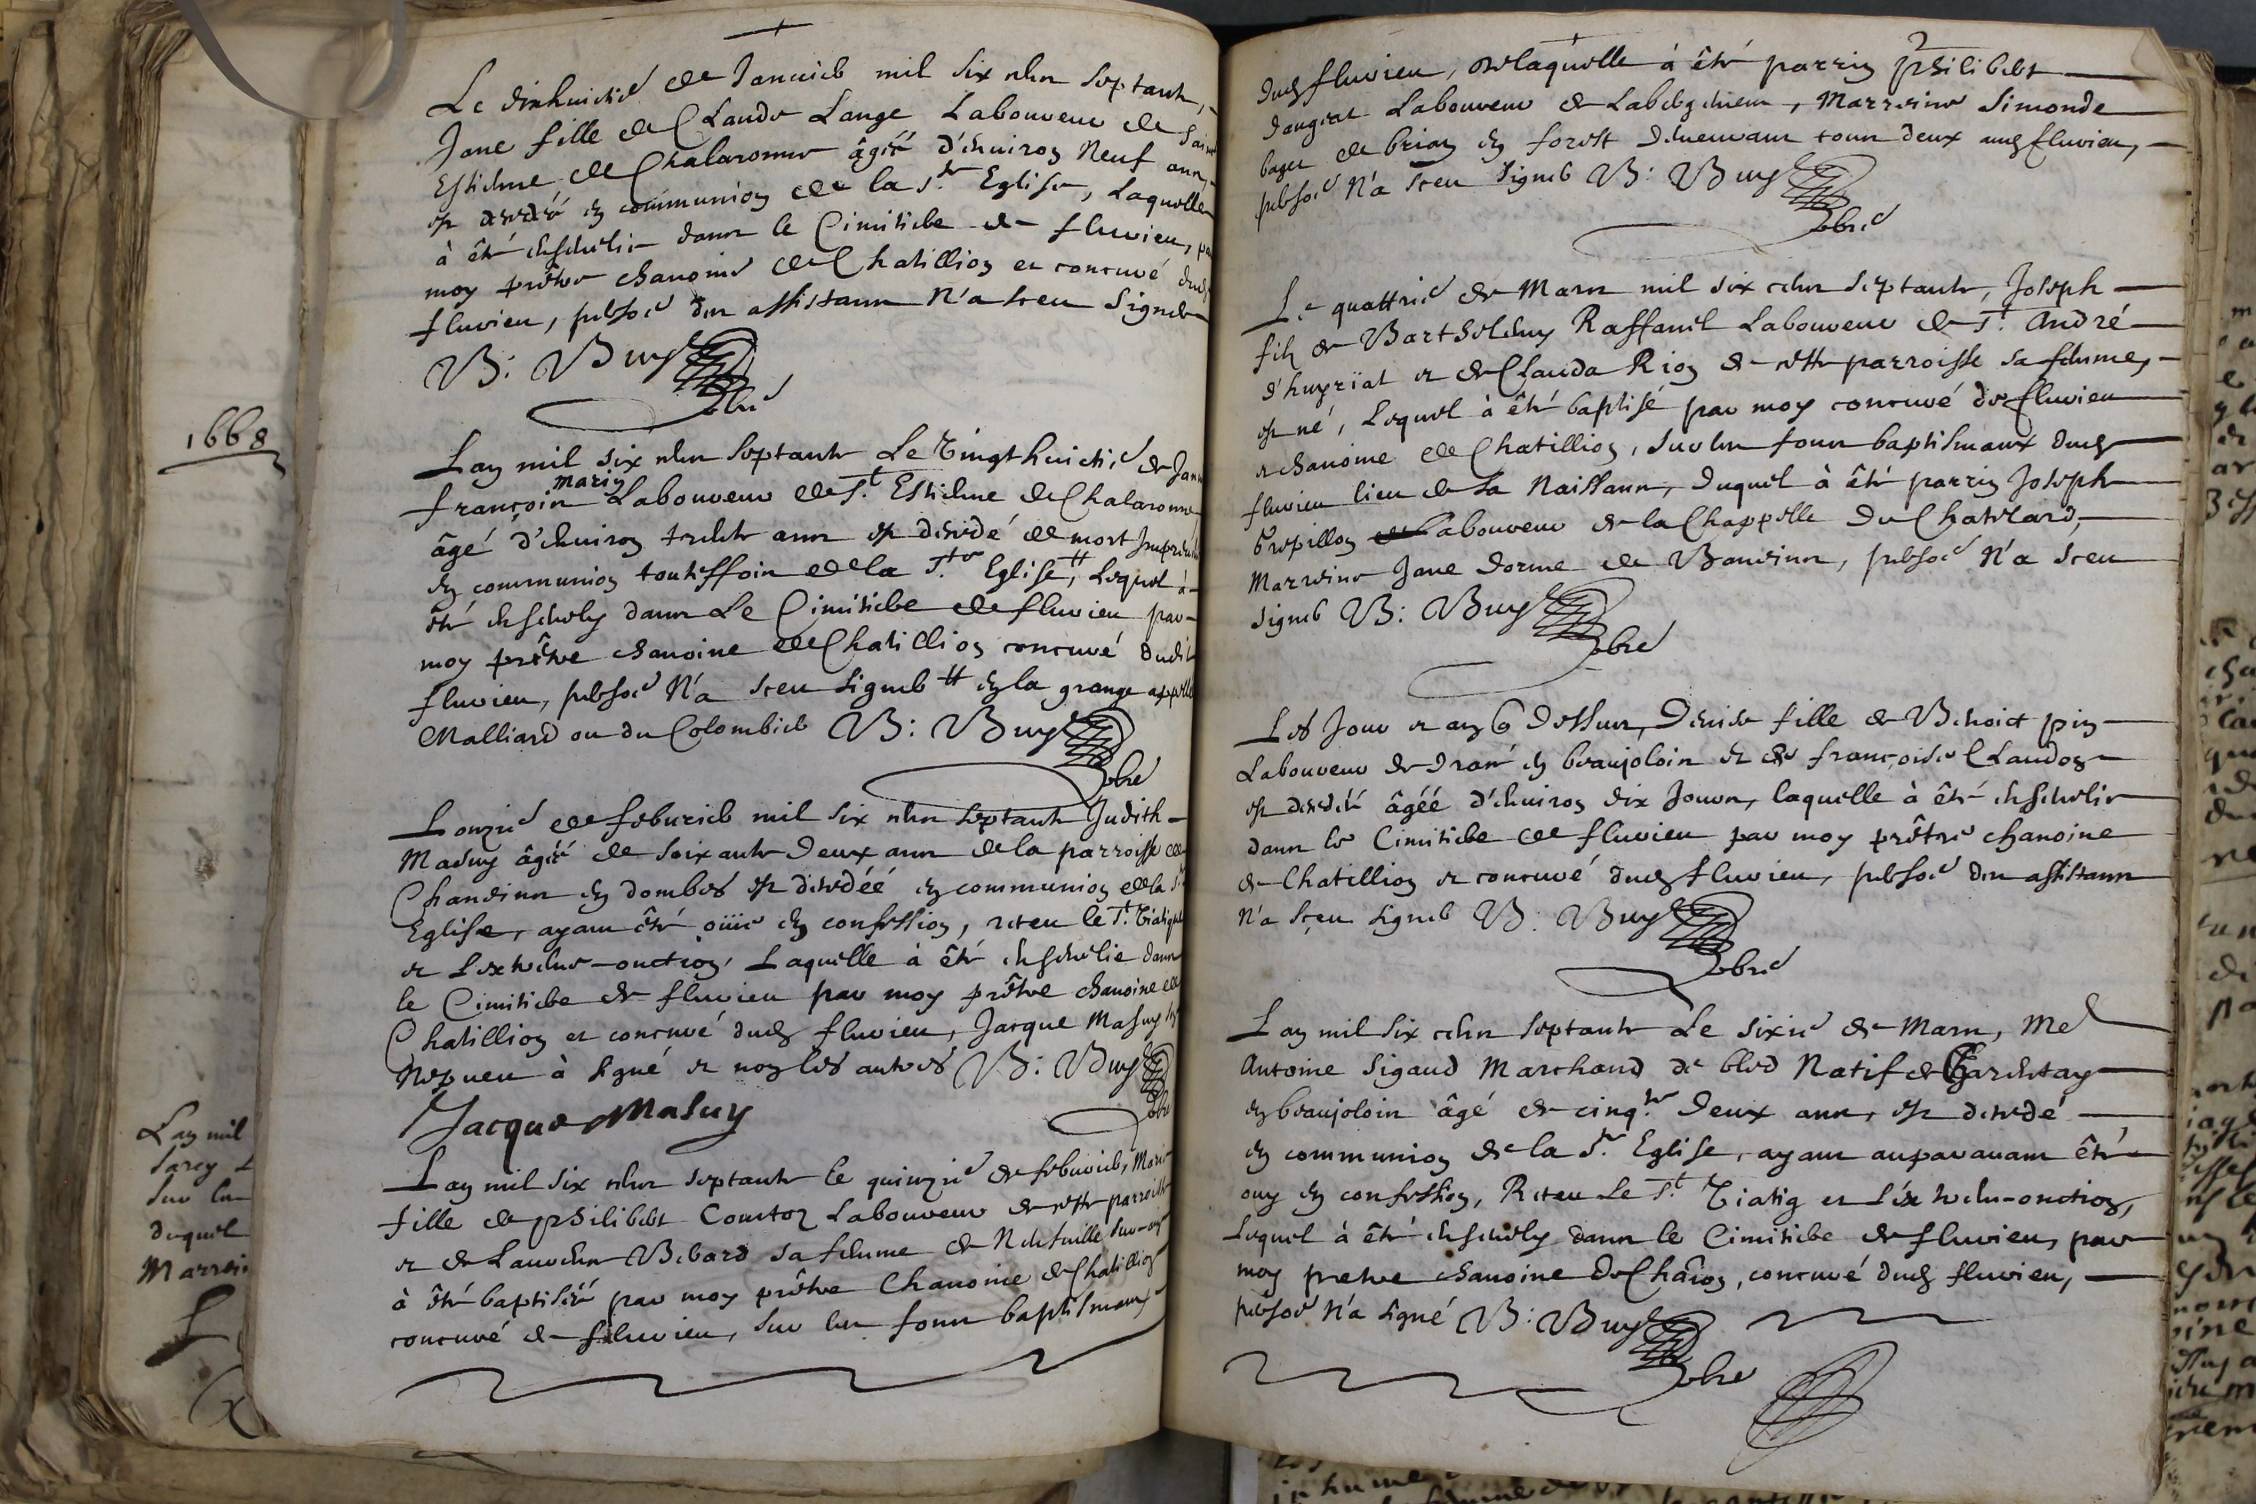 Le dixhuictie de Januier mil six cens septante,
Jane fille de Claude Lange Laboureur de Saint
Estienne de Chalaronne âgéé d'enuiron Neuf ans,
est decedéé en communion de la Ste Eglise, Laquelle
à êté enseuelie dans le Cimitiere de flurieu, par
moy prêtre chanoine de Chatillion et concuré dud
flurieu, persoe des assistans N'a sceu Signer
B: Buy
Lan mil six cens septante Le Vingthuictie de Janu
françois marin Laboureur de St Estienne de Chalaronne,
âgé d'enuiron trente ans est decedé de mort
en communion toutesffois de la Ste Eglise, Lequel à
êté enseuely dans Le Cimitiere de flurieu par
moy prêtre chanoine de Chatillion concuré dudit
flurieu, persoe N'a sceu signer # en la grange appellé
Malliard ou du Colombier B: Buy
Lonzie de feburier mil six cens septante Judith
Masuy âgéé de soixante deux ans de la parroisse de
Chaneins en dombes est decedéé en communion de la Ste
Eglise, ayant êté oüie en confession, receu le St Viatique
et Lextreme-onction, Laquelle à êté enseuelie dans
le Cimitiere de flurieu par moy prêtre chanoine de
Chatillion et concuré dud flurieu, Jacque Masuy son
Nepueu à signé et non les autres B: Buy
Jacque Masuy
Lan mil six cens septante le quinzie de feburier, Marie
fille de philibert Comtoz Laboureur de cette parroisse
et de Laurence Berard sa femme de
à êté baptiséé par moy prêtre Chanoine de Chatillion
concuré de flurieu, sur les fons baptismaux
dud flurieu, de laquelle à êté parrin philibert
Laboureur de Labergement, Marreine Simonde
de brion en forest demeurant tous deux aud flurieu,
persoe N'a sceu signer B: Buy
Le quattrie de Mars mil six cens septante, Joseph
fils de Barthelemy Raffanel Laboureur de St André
d'huyrïat et de Clauda Rion de cette parroisse sa femme,
est né, Lequel à êté baptisé par moy concuré de flurieu
et chanoine de Chatillion, sur les fons baptismaux dud
flurieu lieu de sa Naissance, duquel à êté parrin Joseph
Laboureur de la Chappelle du Chatelard,
Marreine Jane dorme de Baneins, persoe N'a sceu
signer B: Buy
Les Jour et an 6 dessus, Denise fille de Benoict pin
Laboureur de en beaujolois et de françoise Claudon
est decedéé âgéé d'enuiron dix Jours, laquelle à êté enseuelie
dans le Cimitiere de flurieu par moy prêtre chanoine
de Chatillion et concuré dud flurieu, persoe des assistans
N'a sceu signer B: Buy
Lan mil six cens septante Le sixie de Mars, Me
Antoine Sigaud Marchand de bled Natif de
en beaujolois âgé de cinqte deux ans, est decedé
en communion de la Ste Eglise, ayant auparauant êté
ouy en confession, Receu Le St Viatiq et Léxtreme-onction,
Lequel à êté enseuely dans le Cimitiere de flurieu, par
moy pretre chanoine de Chaîon, concuré dud flurieu,
persoe N'a signé B: Buy
1668
Lan mil
Sur les
duquel
Marrei